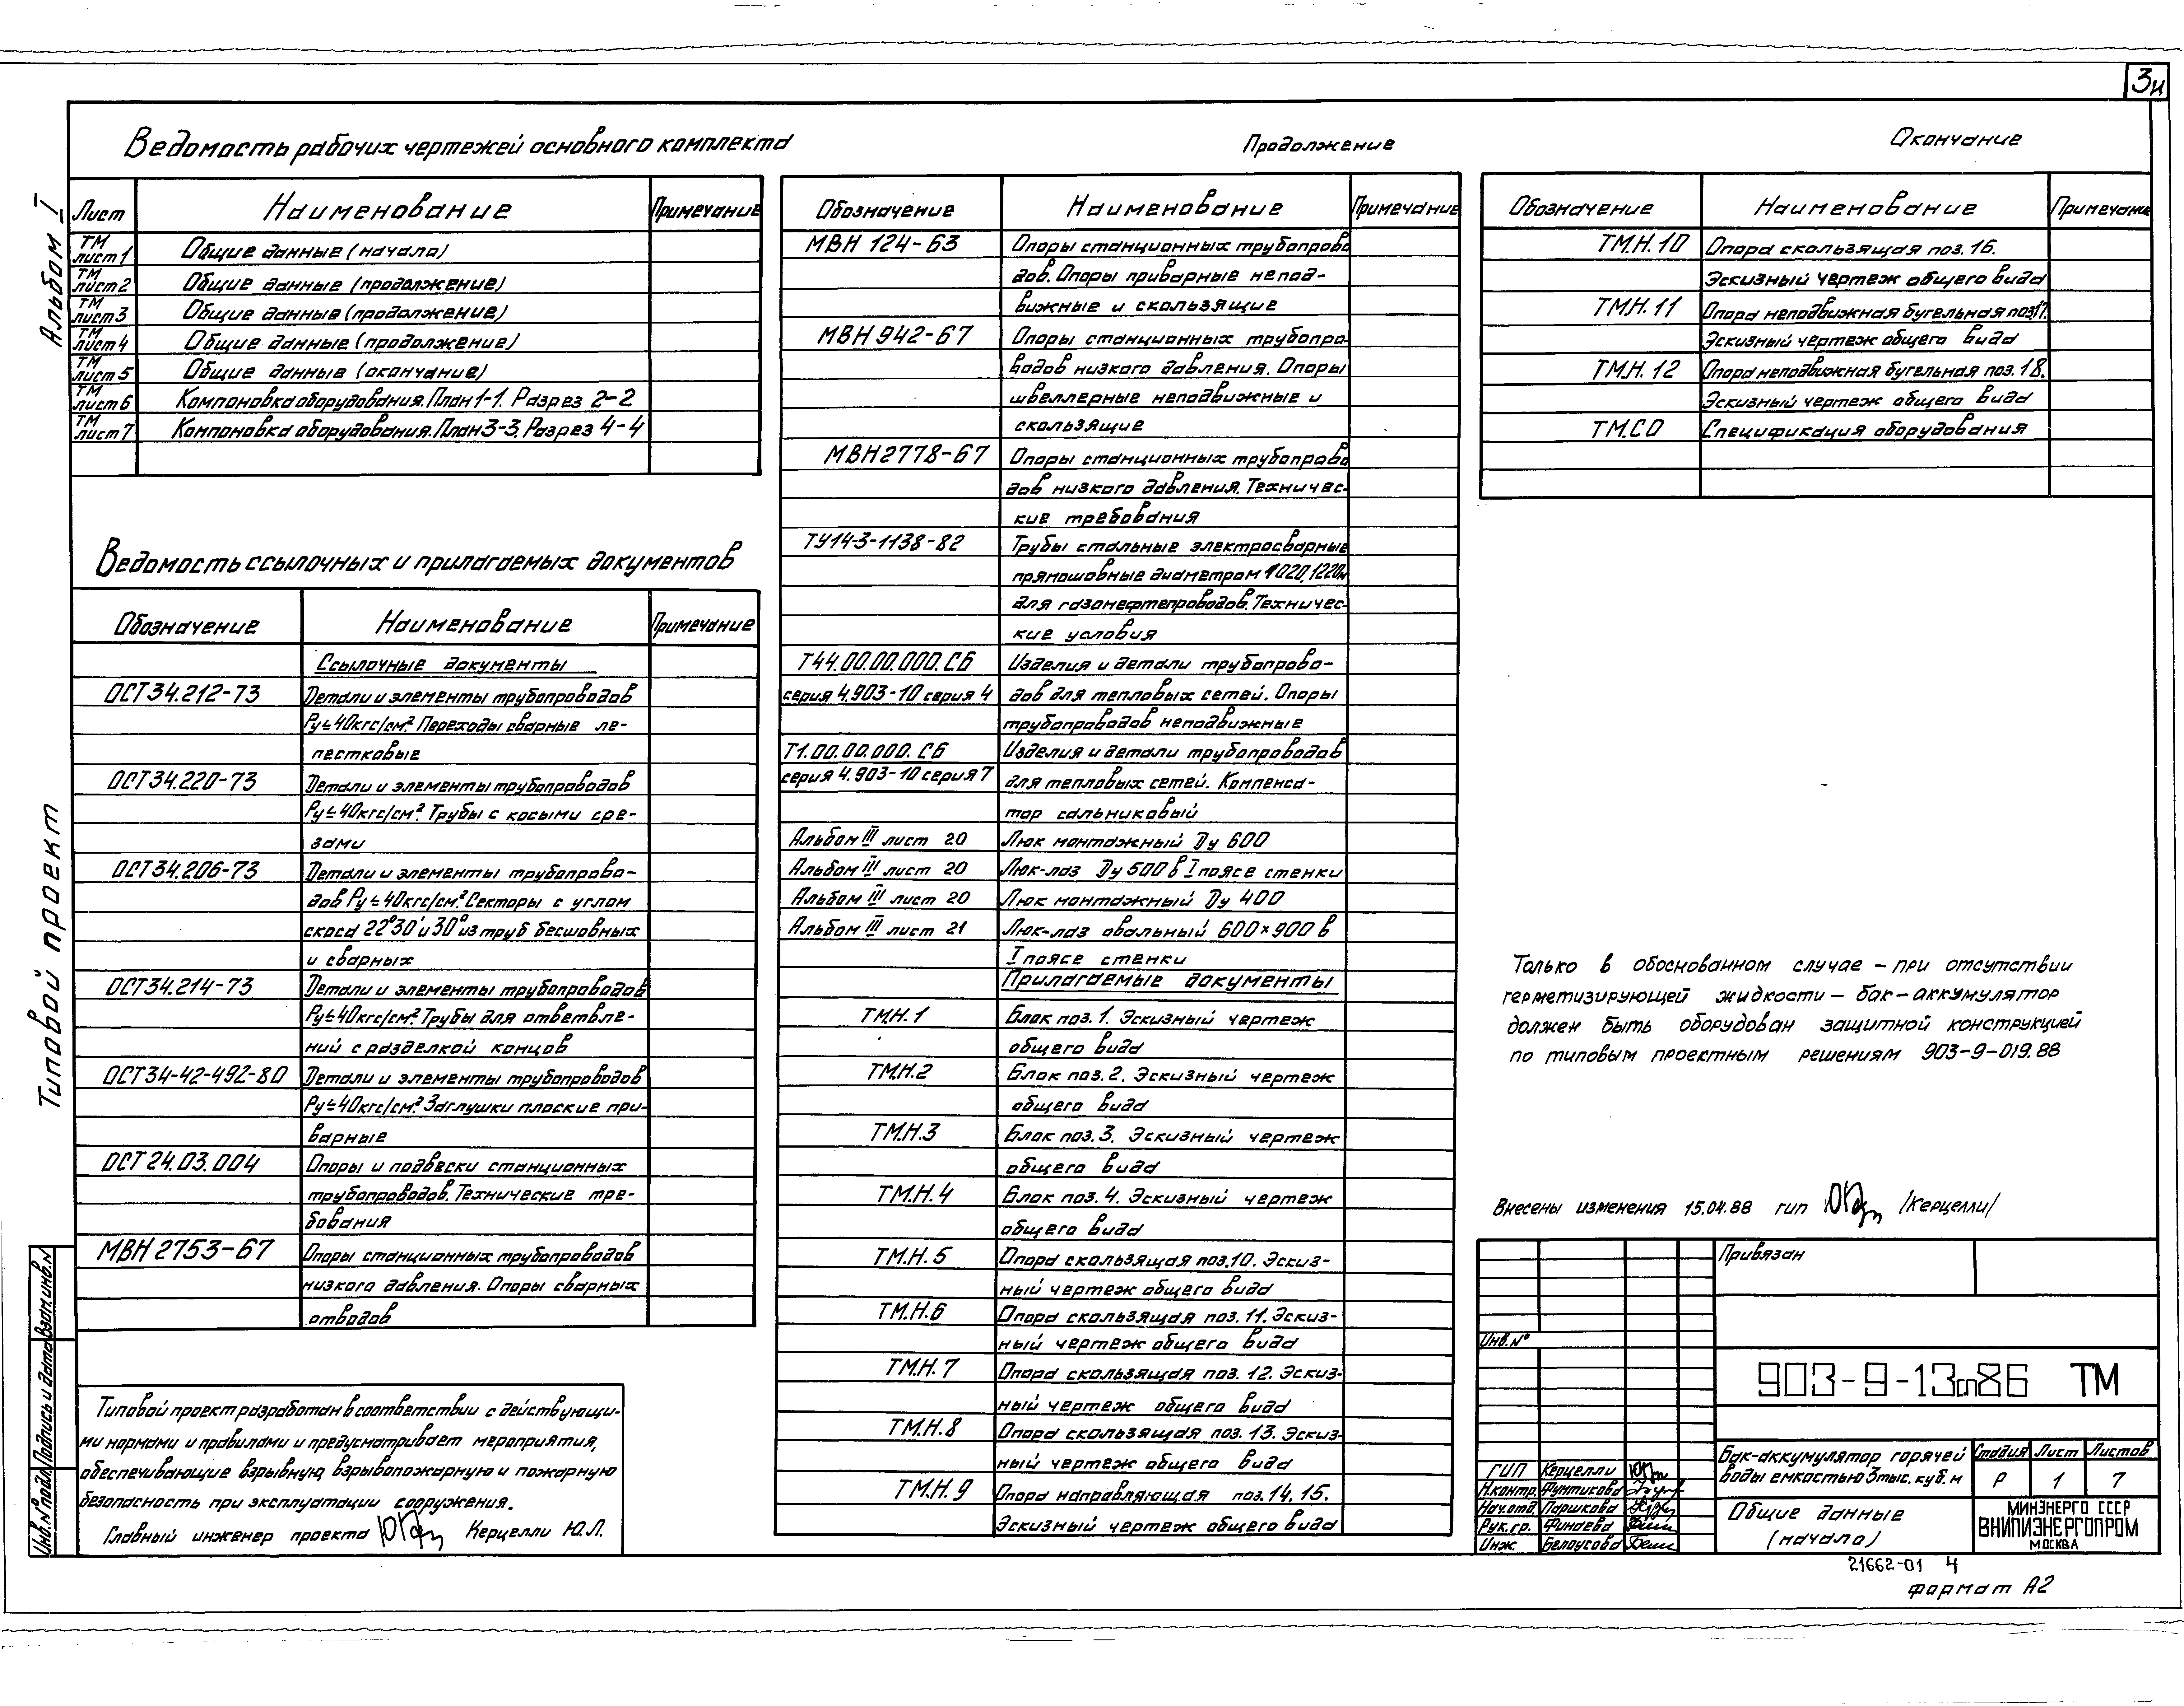 3и
Альбом I
Типовой проект
Ведомость рабочих чертежей основного комплекта
Лист Наименование Примечание
ТМ лист 1 Общие данные (начало)
ТМ лист 2 Общие данные (продолжение)
ТМ лист 3 Общие данные (продолжение)
ТМ лист 4 Общие данные (продолжение)
ТМ лист 5 Общие данные (окончание)
ТМ лист 6 Компоновка оборудования. План 1-1. Разрез 2-2
ТМ лист 7 Компоновка оборудования. План 3-3. Разрез 4-4
Ведомость ссылочных и прилагаемых документов
Обозначение Наименование Примечание
Ссылочные документы
ОСТ 34.212-73 Детали и элементы трубопроводов
Ру≤40кгс/см². Переходы сварные ле-
пестковые
ОСТ 34.220-73 Детали и элементы трубопроводов
Ру≤40кгс/см². Трубы с косыми сре-
зами
ОСТ 34.206-73 Детали и элементы трубопрово-
дов Ру≤40кгс/см². Секторы с углом
скоса 22°30' и 30° из труб бесшовных
и сварных
ОСТ 34.214-73 Детали и элементы трубопроводов
Ру≤40кгс/см². Трубы для ответвле-
ний с разделкой концов
ОСТ 34-42-492-80 Детали и элементы трубопроводов
Ру≤40кгс/см². Заглушки плоские при-
варные
ОСТ 24.03.004 Опоры и подвески станционных
трубопроводов. Технические тре-
бования
МВН 2753-67 Опоры станционных трубопроводов
низкого давления. Опоры сварных
отводов
Типовой проект разработан в соответствии с действующи-
ми нормами и правилами и предусматривает мероприятия,
обеспечивающие взрывную, взрывопожарную и пожарную
безопасность при эксплуатации сооружения.
Главный инженер проекта Керцелли Ю.Л.
Инв.№ подл. Подпись и дата Взам.инв.№
Продолжение
Обозначение Наименование Примечание
МВН 124-63 Опоры станционных трубопрово
дов. Опоры приварные непод-
вижные и скользящие
МВН 942-67 Опоры станционных трубопро-
водов низкого давления. Опоры
швеллерные неподвижные и
скользящие
МВН 2778-67 Опоры станционных трубопрово
дов низкого давления. Техничес-
кие требования
ТУ14-3-1138-82 Трубы стальные электросварные
прямошовные диаметром 1020, 1220м
для газонефтепроводов. Техничес-
кие условия
Т44.00.00.000.СБ Изделия и детали трубопрово-
серия 4.903-10 серия 4 дов для тепловых сетей. Опоры
трубопроводов неподвижные
Т1.00.00.000.СБ Изделия и детали трубопроводов
серия 4.903-10 серия 7 для тепловых сетей. Компенса-
тор сальниковый
Альбом III лист 20 Люк монтажный Ду 600
Альбом III лист 20 Люк-лаз Ду 500 в I поясе стенки
Альбом III лист 20 Люк монтажный Ду 400
Альбом III лист 21 Люк-лаз овальный 600×900 в
I поясе стенки
Прилагаемые документы
ТМ.Н.1 Блок поз. 1. Эскизный чертеж
общего вида
ТМ.Н.2 Блок поз. 2. Эскизный чертеж
общего вида
ТМ.Н.3 Блок поз. 3. Эскизный чертеж
общего вида
ТМ.Н.4 Блок поз. 4. Эскизный чертеж
общего вида
ТМ.Н.5 Опора скользящая поз.10. Эскиз-
ный чертеж общего вида
ТМ.Н.6 Опора скользящая поз. 11. Эскиз-
ный чертеж общего вида
ТМ.Н.7 Опора скользящая поз. 12. Эскиз-
ный чертеж общего вида
ТМ.Н.8 Опора скользящая поз. 13. Эскиз-
ный чертеж общего вида
ТМ.Н.9 Опора направляющая поз. 14, 15.
Эскизный чертеж общего вида
Окончание
Обозначение Наименование Примечание
ТМ.Н.10 Опора скользящая поз. 16.
Эскизный чертеж общего вида
ТМ.Н.11 Опора неподвижная бугельная поз.17.
Эскизный чертеж общего вида
ТМ.Н.12 Опора неподвижная бугельная поз. 18.
Эскизный чертеж общего вида
ТМ.СО Спецификация оборудования
Только в обоснованном случае – при отсутствии
герметизирующей жидкости – бак-аккумулятор
должен быть оборудован защитной конструкцией
по типовым проектным решениям 903-9-019.88
Внесены изменения 15.04.88 гип /Керцелли/
Привязан
Инв.№
903-9-13сп86 ТМ
ГИП Керцелли
Н.контр. Фунтикова
Нач.отд. Паршкова
Рук.гр. Финаева
Инж. Белоусова
Бак-аккумулятор горячей
воды емкостью 3 тыс. куб. м
Стадия Лист Листов
Р 1 7
Общие данные
(начало)
МИНЭНЕРГО СССР
ВНИПИЭНЕРГОПРОМ
МОСКВА
21662-01 4
формат А2